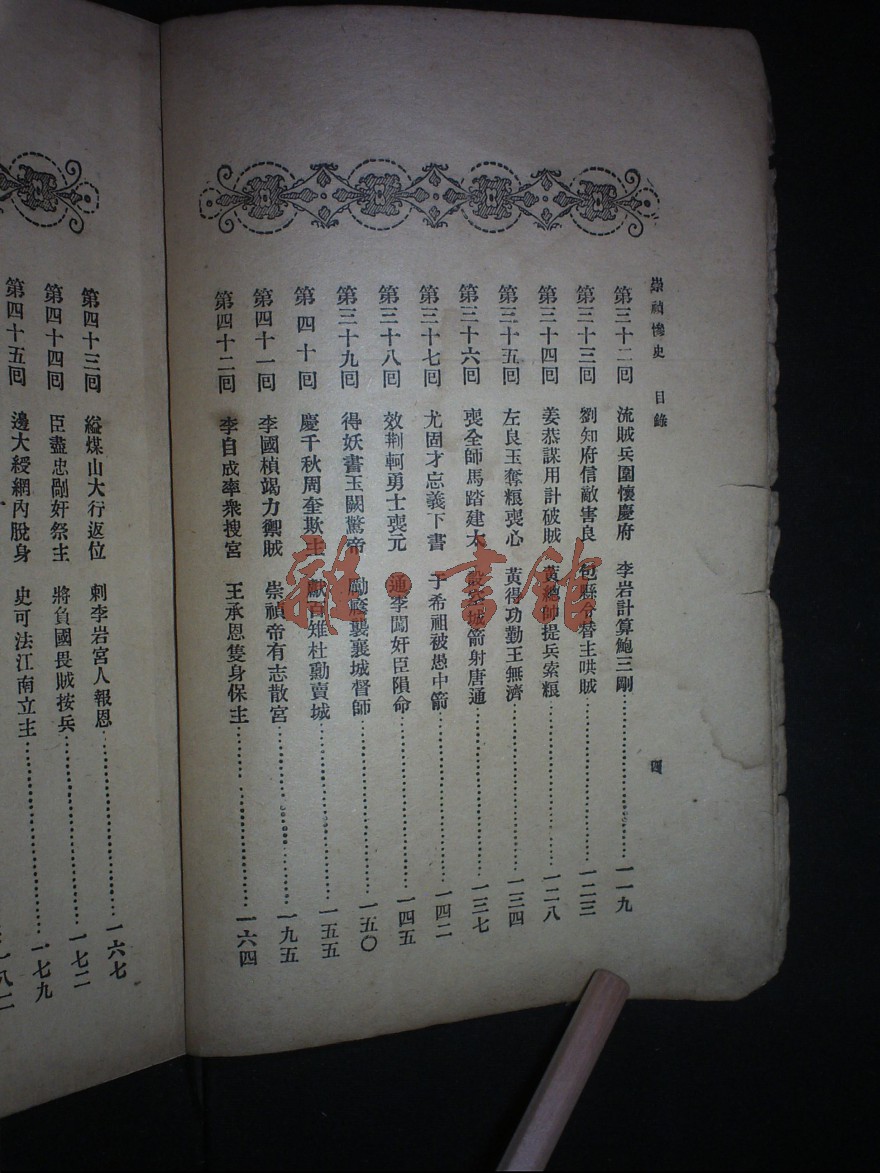 崇禎慘史 目錄 四
第三十二回 流賊兵圍懷慶府 李岩計算鮑三剛 一一九
第三十三回 劉知府信敵害良 包縣令替主哄賊 一二三
第三十四回 姜恭謀用計破賊 黃總帥提兵索糧 一二八
第三十五回 左良玉奪糧喪心 黃得功勤王無濟 一三四
第三十六回 喪全師馬踏建大 空城箭射唐通 一三七
第三十七回 尤固才忘義下書 于希祖被愚中箭 一四二
第三十八回 效荆軻勇士喪元 通李闖奸臣隕命 一四五
第三十九回 得妖書玉闕驚帝 勵襲襄城督師 一五〇
第四十回 慶千秋周奎欺主 獻百雉杜勳賣城 一五五
第四十一回 李國楨竭力禦賊 崇禎帝有志散宮 一九五
第四十二回 李自成率衆搜宮 王承恩隻身保主 一六四
第四十三回 縊煤山大行返位 刺李岩宮人報恩 一六七
第四十四回 臣盡忠剮奸祭主 將負國畏賊按兵 一七二
第四十五回 邊大綬網內脫身 史可法江南立主 一七九
一八二
雜·書館